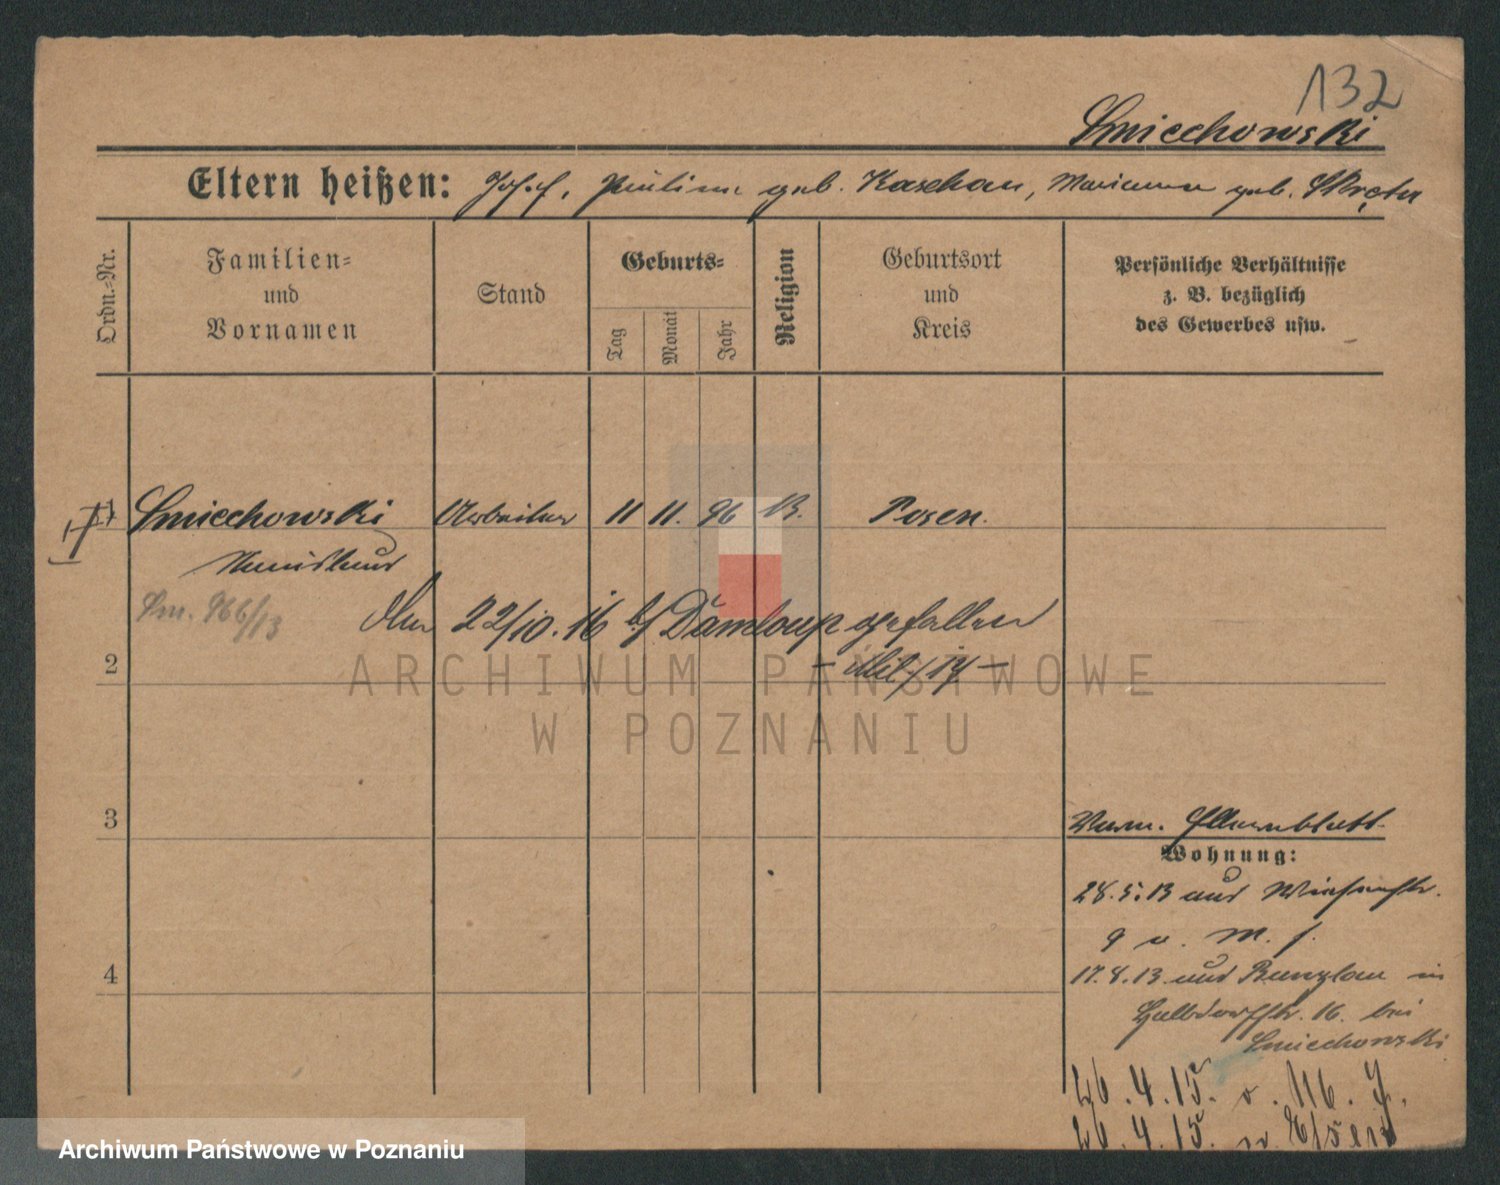 132
Smiechowski
Eltern heißen: Josef, Pauline geb. Kaschau, Marianna geb. Skręta
Ordn.-Nr.
Familien-
und
Vornamen
Stand
Geburts-
Tag
Monat
Jahr
Religion
Geburtsort
und
Kreis
Persönliche Verhältnisse
z. B. bezüglich
des Gewerbes usw.
1 Smiechowski Arbeiter 11 11. 96 Posen.
Stanislaus
Sm. 966/13
22/10. 16 b/ Damloup gefallen
2
- Mil/17 -
ARCHIWUM PAŃSTWOWE
W POZNANIU
3
Elternblatt
Wohnung:
28.5.13 aus
9 v. M. f.
4
17.8.13 aus Bunzlau in
16. bei
Smiechowski
26.4.15. v. 116. J.
26.4.15.
Archiwum Państwowe w Poznaniu